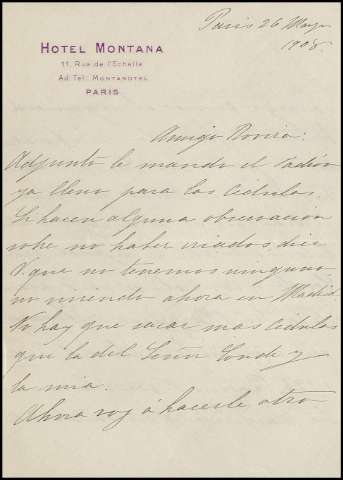 Paris 26 Mayo
1908.
HOTEL MONTANA
11, Rue de l'Echelle
Ad. Tel: MONTANOTEL
PARIS
Amigo Rovira:
Adjunto le mando el Padrón
ya lleno para las Cédulas.
Si hacen alguna observación
sobre no haber criados dice
V. que no tenemos ninguno
no viviendo ahora en Madrid
No hay que sacar mas Cédulas
que la del Señor Conde y
la mia.
Ahora voy á hacerle otro